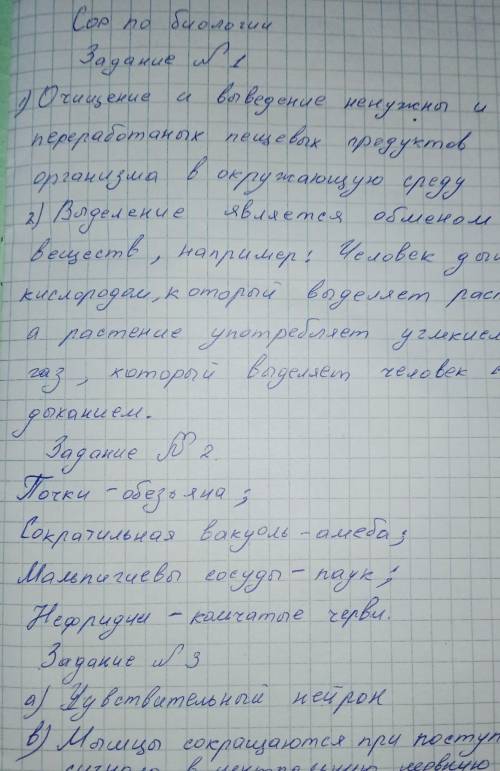 Сор по биологии
Задание №1
1) Очищение и выведение ненужны и
переработаных пещевых продуктов
организма в окружающую среду
2) Выделение является обменом
веществ, например: Человек ды
кислородом, который выделяет рас
а растение употребляет углекисл
газ, который выделяет человек
дыханием.
Задание №2.
Почки - обезьяна;
Сократильная вакуоль - амеба;
Мальпигиевы сосуды - паук;
Нефридии - колчатые черви.
Задание №3
а) Чувствительный нейрон
в) Мымцы сокращаются при поступ
сигнала в центральную нервную